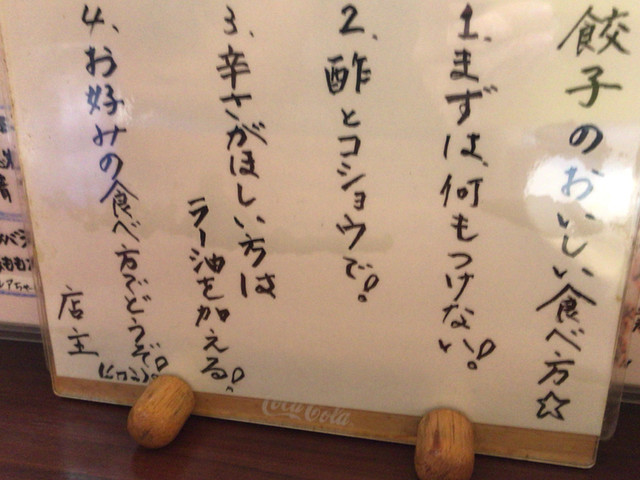 餃子のおいしい食べ方☆
1、まずは、何もつけない!。
2、酢とコショウで!。
3、辛さがほしい方は
ラー油を加える!。
4、お好みの食べ方でどうぞ!。
店主
Coca-Cola